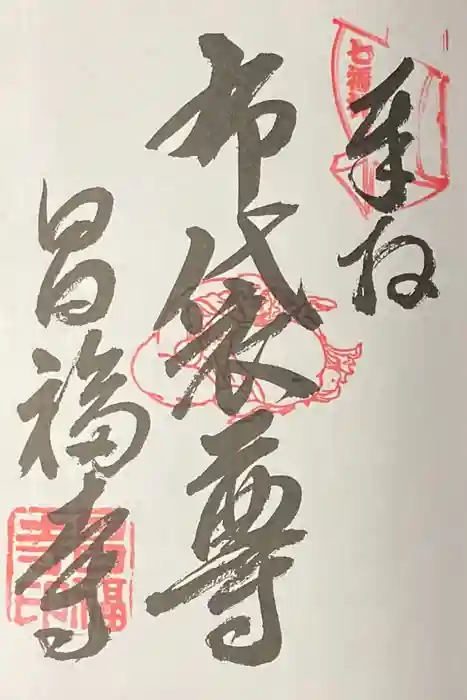 奉拝
布袋尊
昌福寺
七福神
昌福寺印